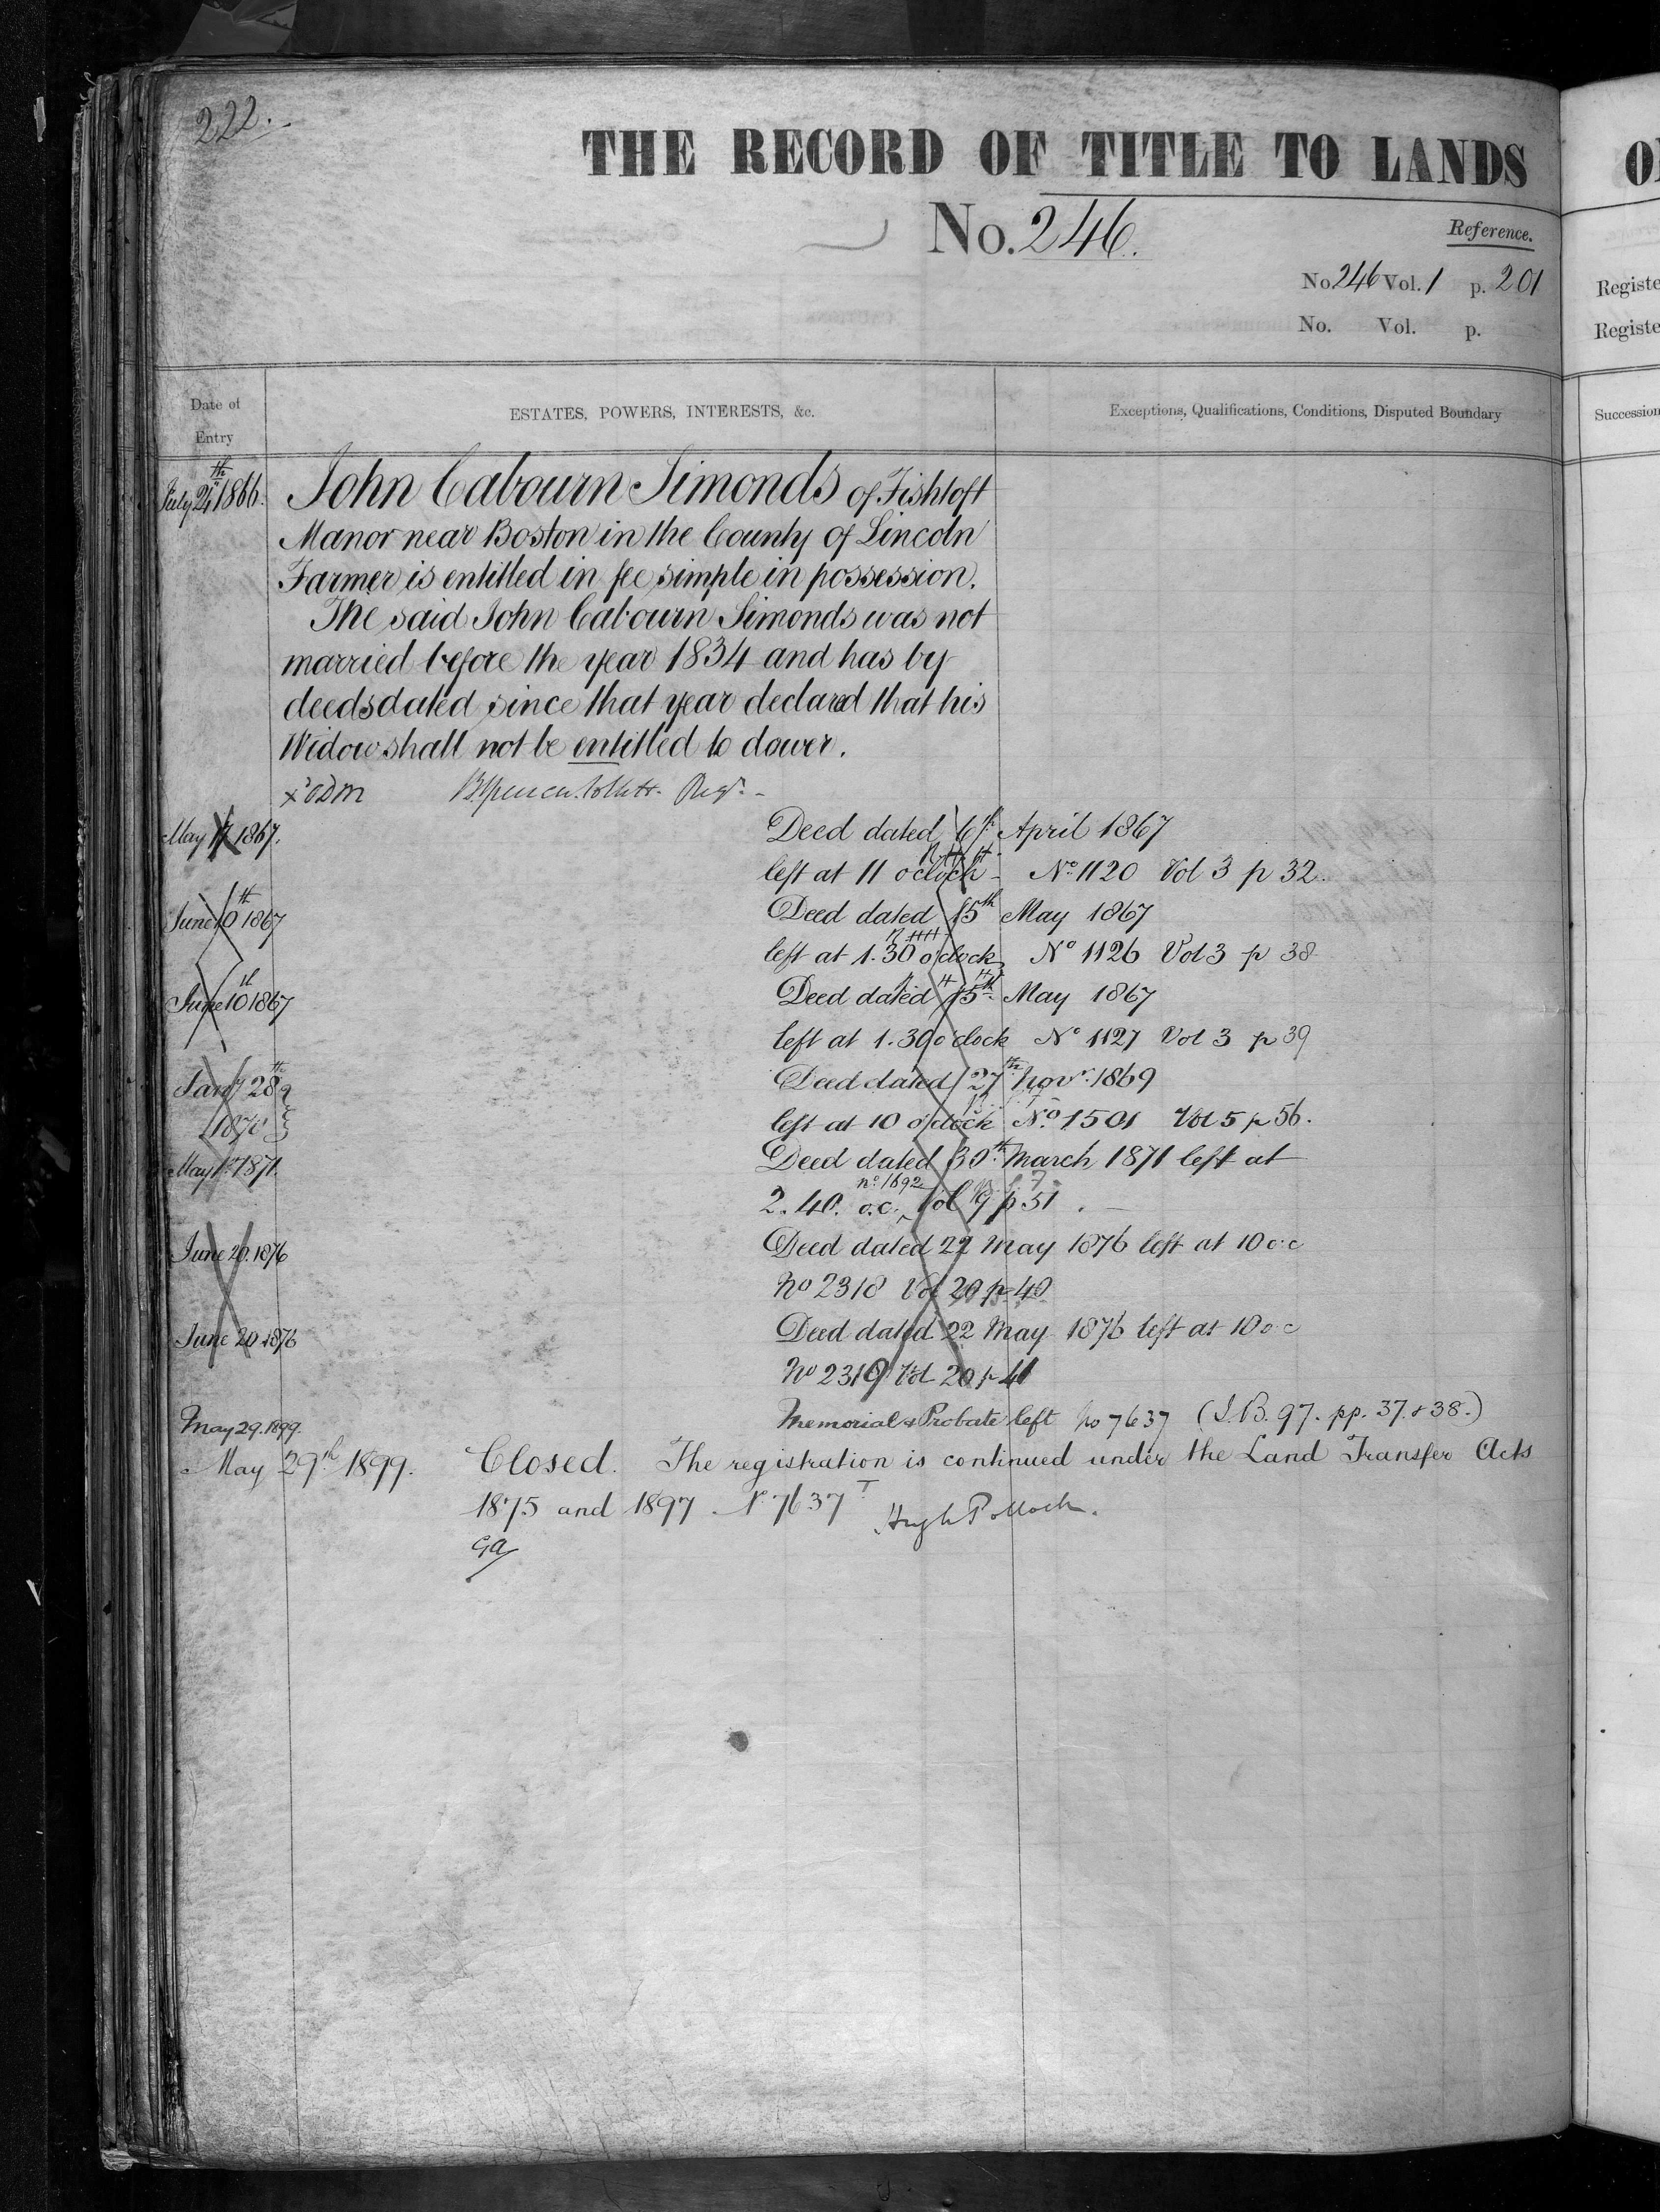 222.
THE RECORD OF TITLE TO LANDS
No. 246.
Reference.
No 246 Vol. 1 p. 201
No. Vol. p.
Registe
Registe
Date of
Entry
ESTATES, POWERS, INTERESTS, &c.
Exceptions, Qualifications, Conditions, Disputed Boundary
Succession
July 24th 1866. John Cabourn Simonds of Fishtoft
Manor near Boston in the County of Lincoln
Farmer is entitled in fee simple in possession.
The said John Cabourn Simonds was not
married before the year 1834 and has by
deeds dated since that year declared that his
Widow shall not be entitled to dower.
Regr.
May 17 1867. Deed dated 6th April 1867
left at 11 o'clock No. 1120 Vol 3 p 32.
June 10th 1867 Deed dated 15th May 1867
left at 1.30 o'clock No 1126 Vol 3 p 38
June 10th 1867 Deed dated 15th May 1867
left at 1.30 o'clock No 1127 Vol 3 p 39
Jany 28th Deed dated 27th Novr. 1869
1870 left at 10 o'clock No. 1501 Vol 5 p 56.
May 1st 1871. Deed dated 30th March 1871 left at
2.40. o.c. no. 1692 Vol 9 p 51.
June 20. 1876 Deed dated 22 May 1876 left at 10 o.c
No 2318 Vol 20 p 40
June 20 1876 Deed dated 22 May 1876 left at 10 o.c
No 2319 Vol 20 p 41
May 29. 1899. Memorial & Probate left No 7637 (I.B. 97. pp. 37. & 38.)
May 29th 1899. Closed. The registration is continued under the Land Transfer Acts
1875 and 1897 No 7637 Hugh Pollock.
GA